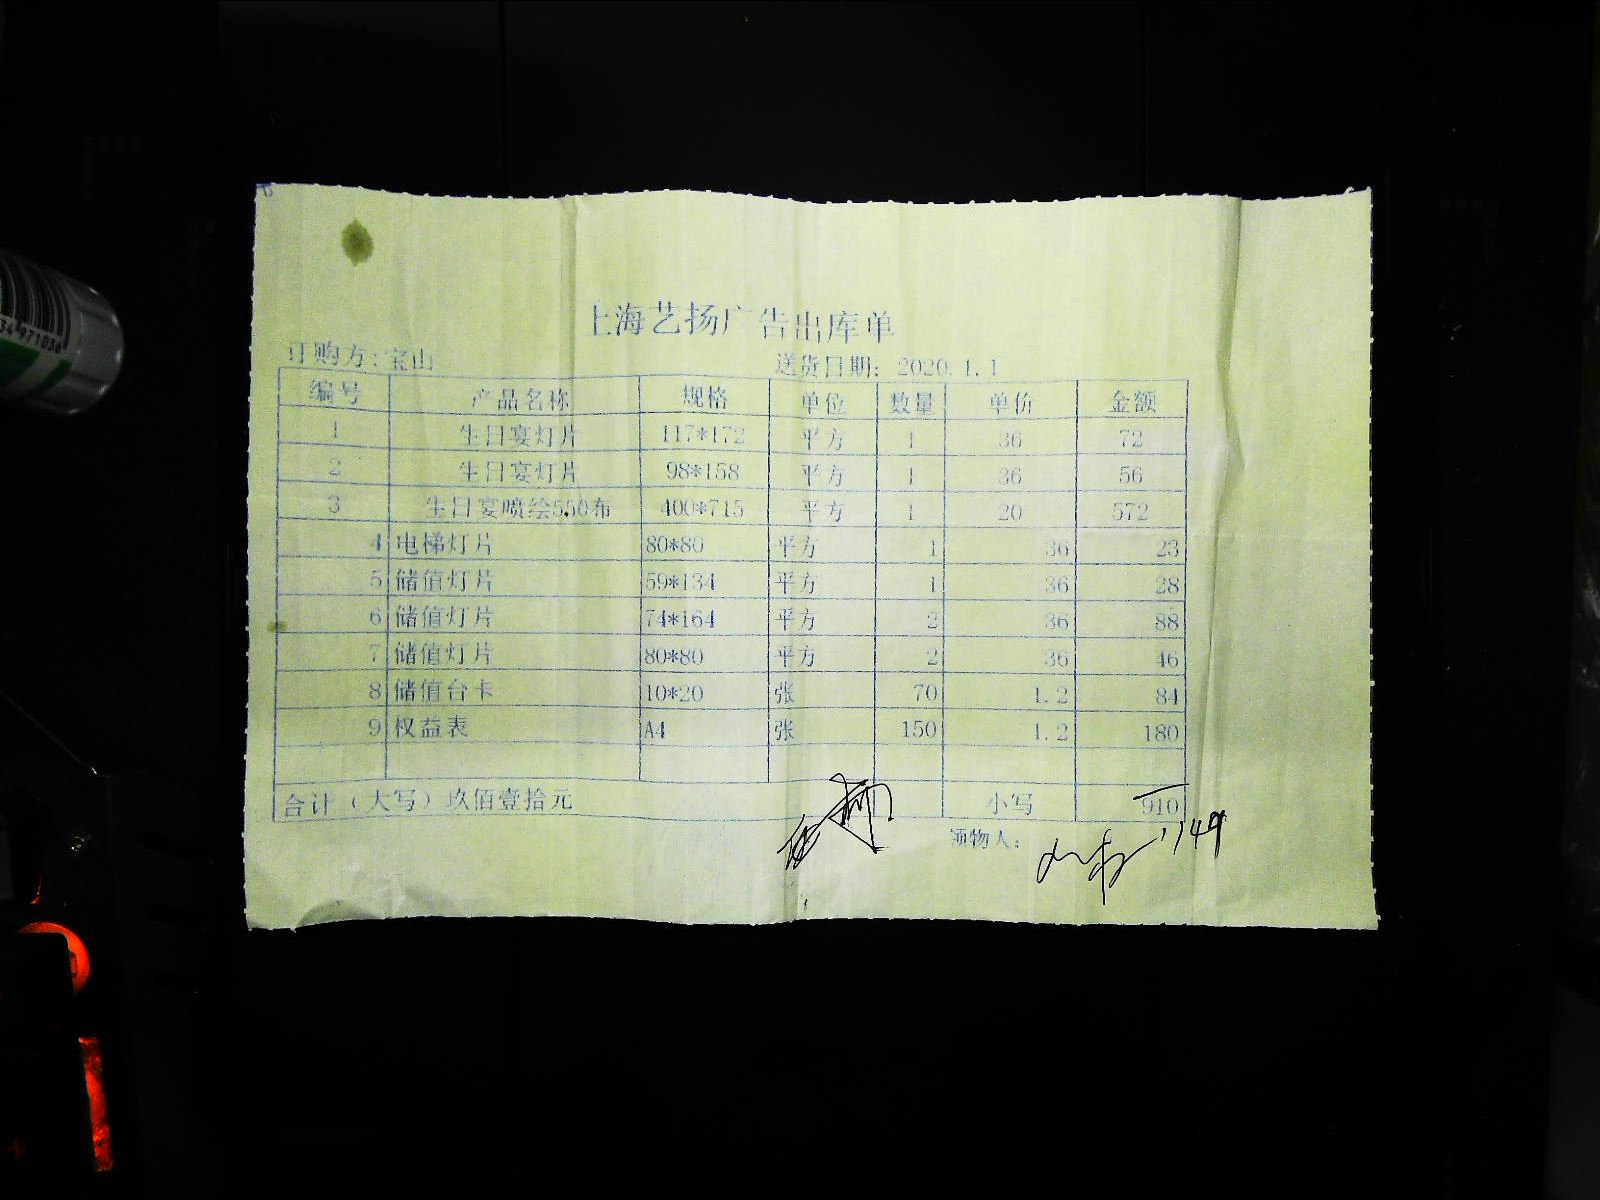 上海艺扬广告出库单
订购方:宝山 送货日期: 2020.1.1
编号 产品名称 规格 单位 数量 单价 金额
1 生日宴灯片 117*172 平方 1 36 72
2 生日宴灯片 98*158 平方 1 36 56
3 生日宴喷绘550布 400*715 平方 1 20 572
4 电梯灯片 80*80 平方 1 36 23
5 储值灯片 59*134 平方 1 36 28
6 储值灯片 74*164 平方 2 36 88
7 储值灯片 80*80 平方 2 36 46
8 储值台卡 10*20 张 70 1.2 84
9 权益表 A4 张 150 1.2 180
合计（大写）玖佰壹拾元 小写 910
领物人: 1149
971036